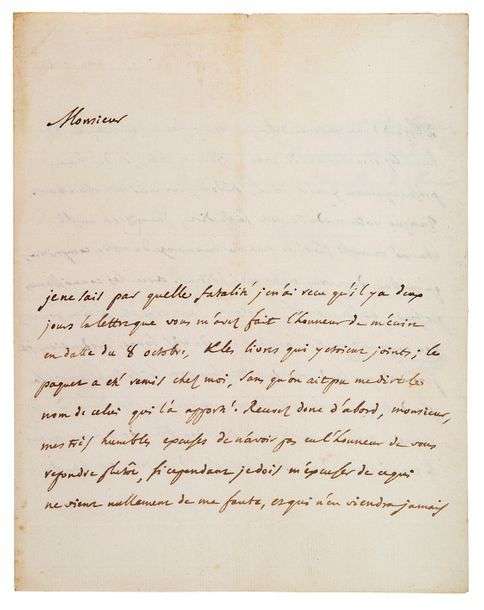 Monsieur
je ne sais par quelle fatalité je n'ai reçu qu'il y a deux
jours la lettre que vous m'avez fait l'honneur de m'écrire
en datte du 8 octobre, & les livres qui y etoient joints; le
paquet a eté remis chez moi, sans qu'on ait pu me dire le
nom de celui qui l'a apporté. Recevez donc d'abord, monsieur,
mes très humbles excuses de n'avoir pas eu l'honneur de vous
repondre plutôt, si cependant je dois m'excuser de ce qui
ne vient nullement de ma faute, et qui n'en viendra jamais